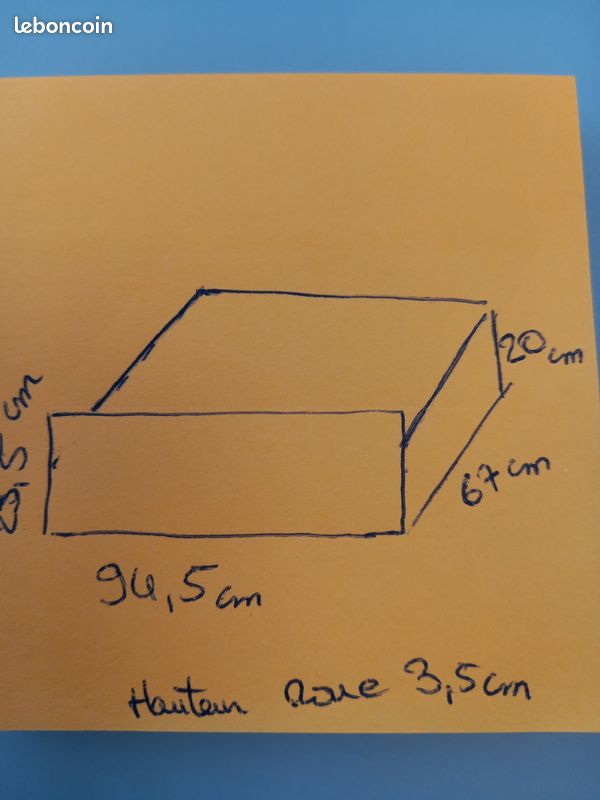 leboncoin
20 cm
,5 cm
67 cm
94,5 cm
Hauteur Roue 3,5 cm